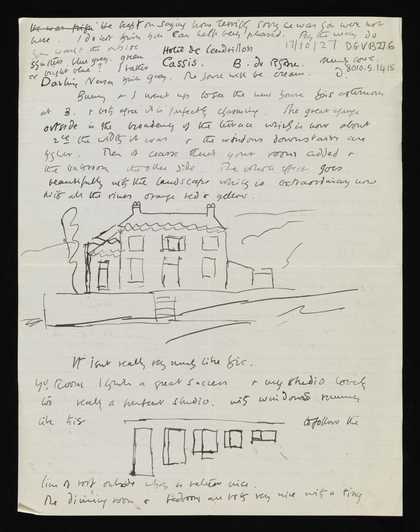 he kept on saying how terribly sorry he was you were not
here. I do not think you can help being pleased. By the way do
you want the outside
shutters blue grey, green
or bright blue? I rather
Hotel de Cendrillon
Cassis. B. du Rhone.
17/10/27 DG VB 276
8010.5.1415
Darling Nessa blue grey. The house will be cream.
Bunny & I went up to see the new house this afternoon
at 3. & I agree it is perfectly charming. The great change
outside is the broadening of the terrace which is now about
2ce the width it was & the windows downstairs are
higher. Then of course there's your rooms added &
the bathroom the other side. The whole affair goes
beautifully with the landscape which is extraordinary now
with all the vines orange red & yellow.
It isn't really very much like this.
Yr. Room I think a great success & my studio lovely
too really a perfect studio. with windows running
like this
to follow the
line of roof outside which is rather nice.
The dining room & bedroom are both very nice with a tiny